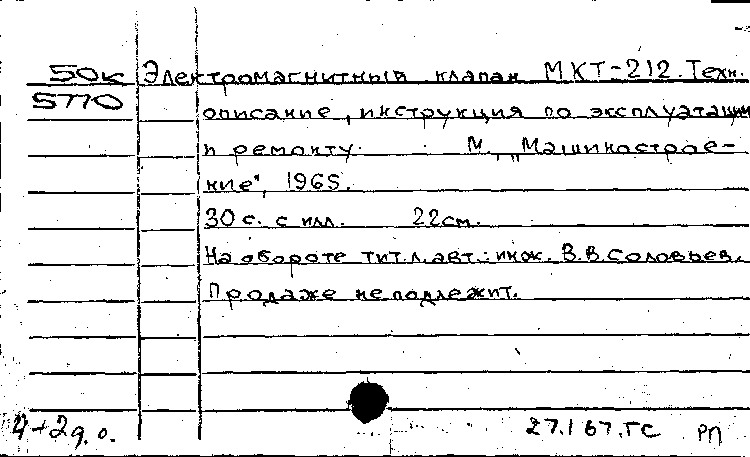 50к Электромагнитный клапан МКТ-212. Техн.
5770 описание, инструкция по эксплуатации
и ремонту. М., „Машинострое-
ние", 1965.
30 с. с илл. 22см.
На обороте тит.л. авт.: инж. В.В.Соловьев.
Продаже не подлежит.
4+2д.о. 27.1 67.ГС РП